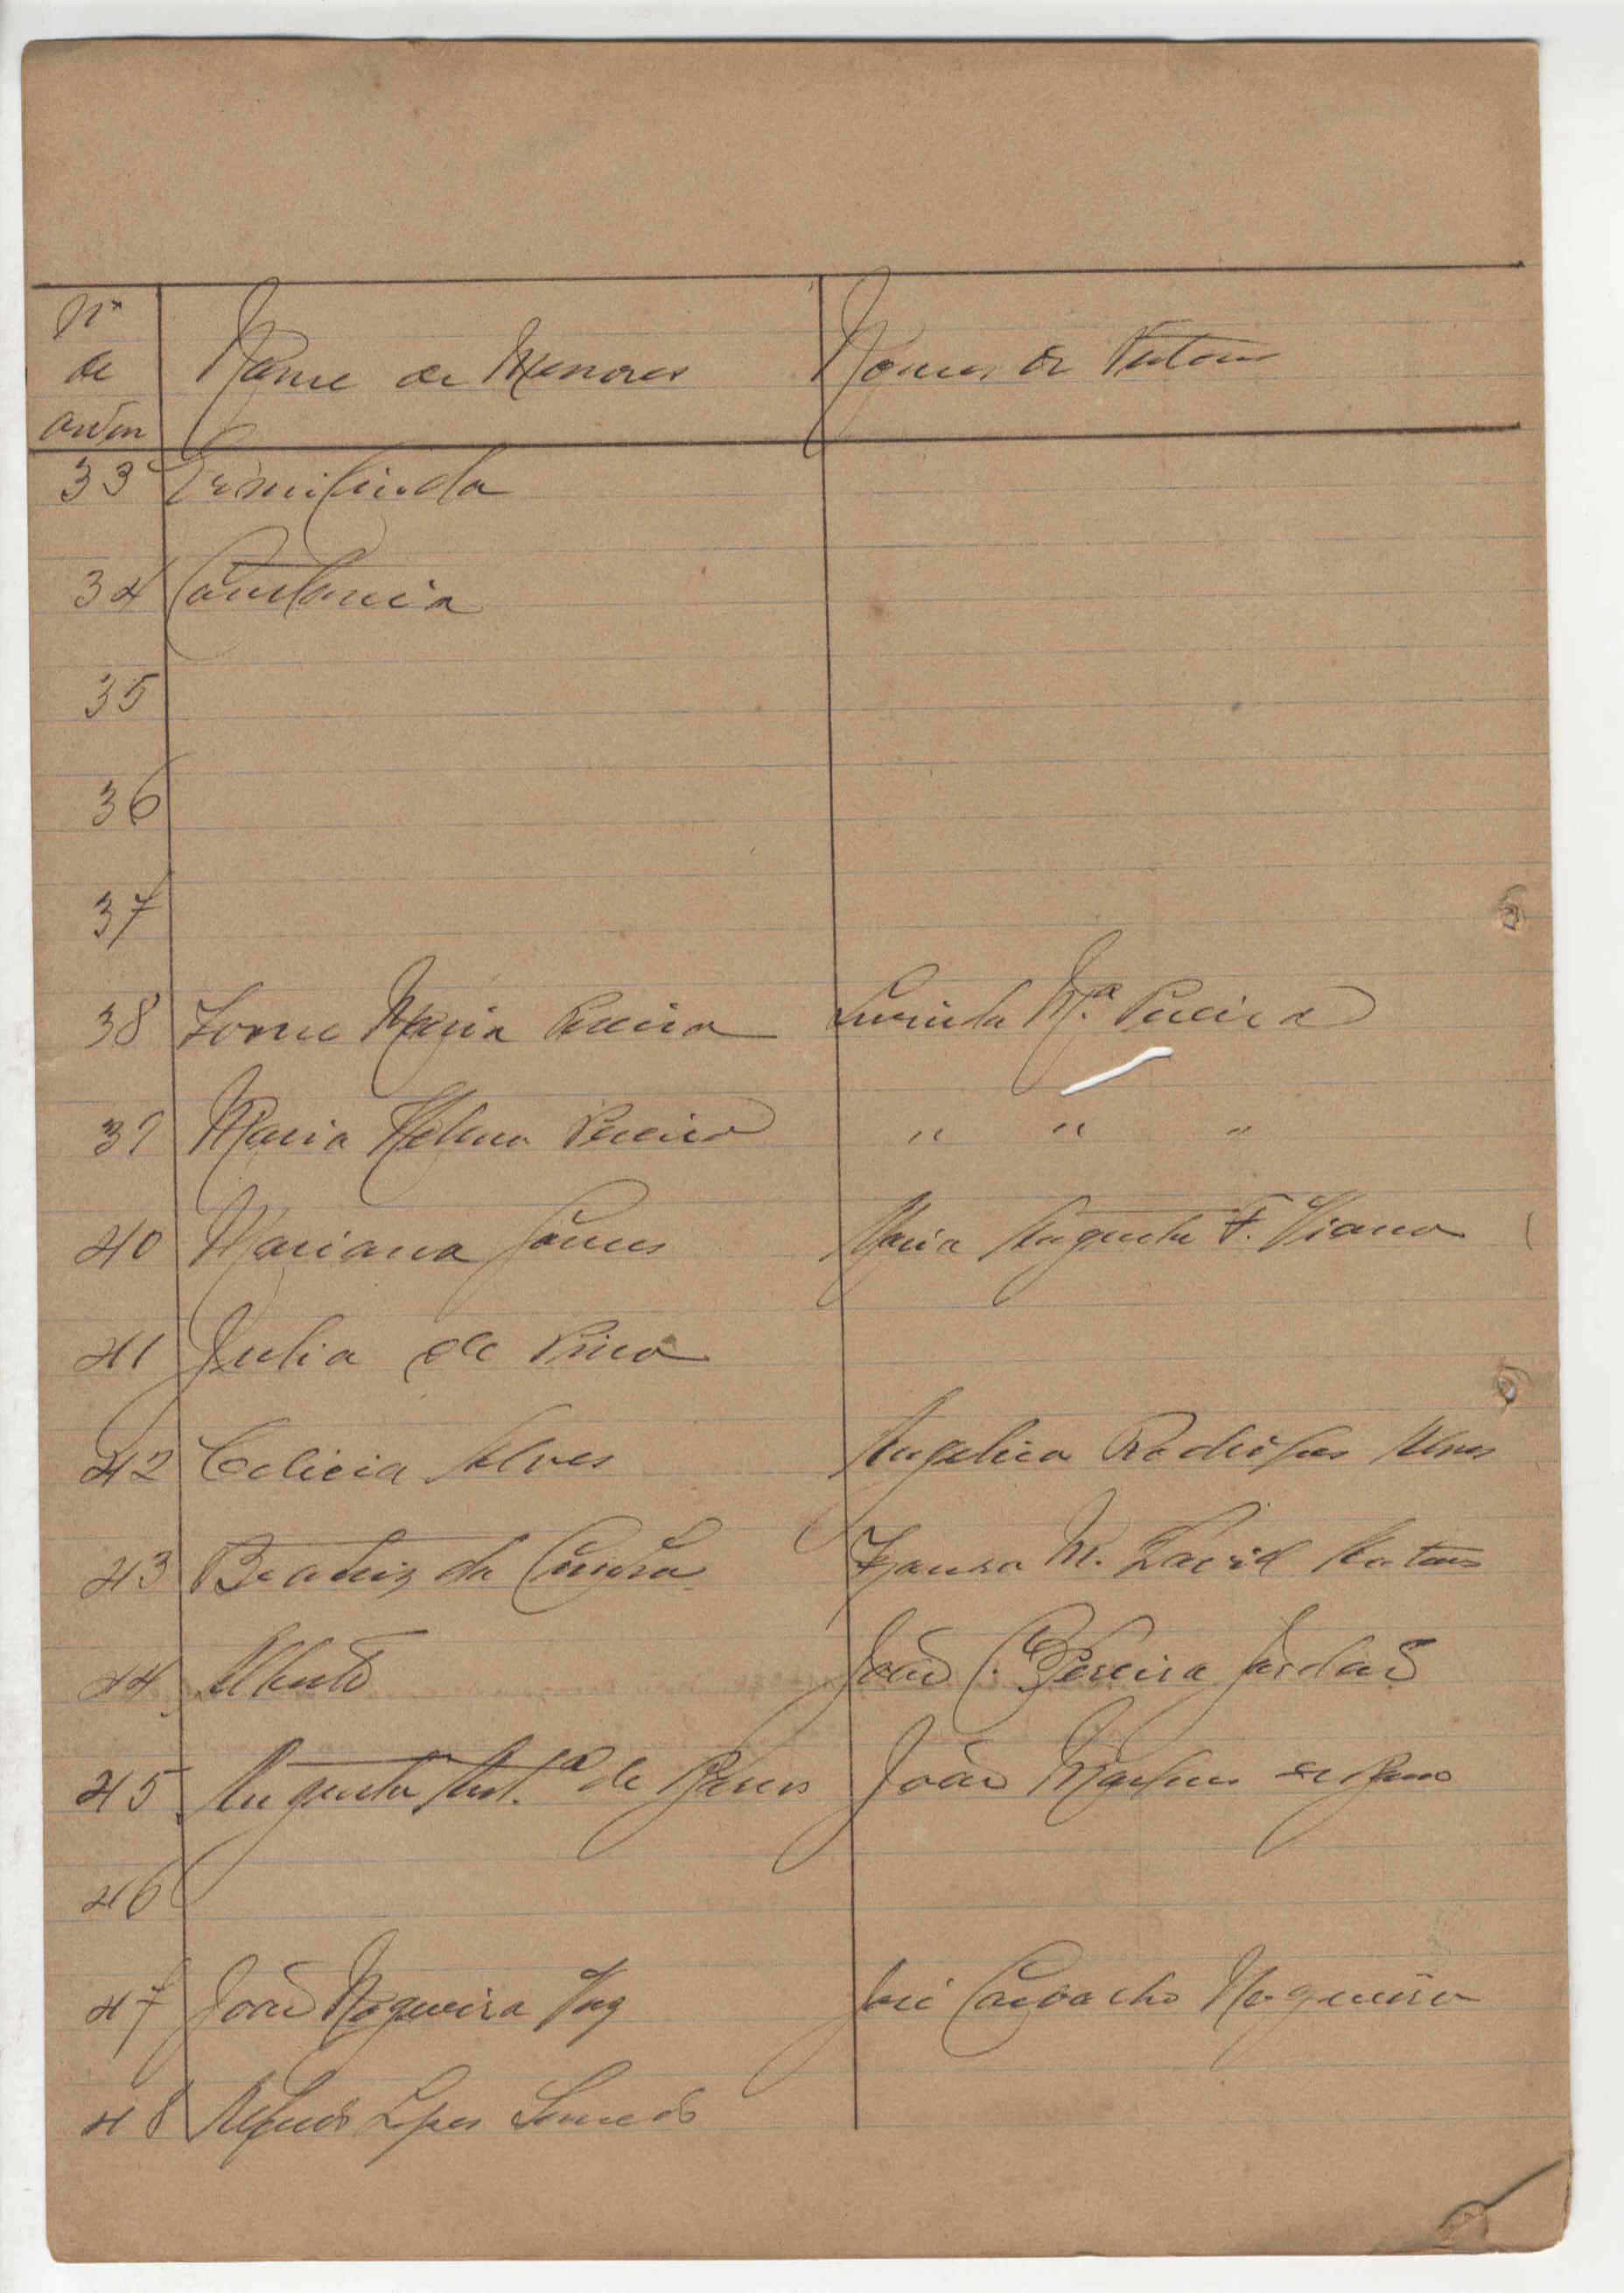 Nº
de
ordem
Nome de Menores
Nomes de Tutores
33 Ermilinda
34 Constancia
35
36
37
38 Maria Pereira
Lucinda Mª Pereira
39 Maria Helena Pereira
" " "
40 Mariana Gomes
Maria Augusta F. Viana
41 Julia de
42 Celicia Alves
Angelica Rodrigues Alves
43 Beatriz da Cunha
M. David
44 Alberto
João C. Pereira Jordão
45 Augusta Antª de
João Martins
46
47 João Nogueira
José Carvalho Nogueira
48 Alfredo Lopes